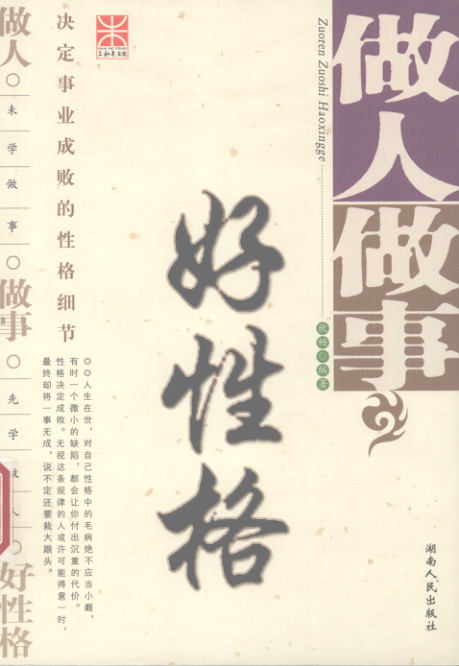 做人做事
Zuoren Zuoshi Haoxingge
编著
好性格
湖南人民出版社
三和年文化
决定事业成败的性格细节
◎◎人生在世，对自己性格中的毛病绝不应当小觑，
有时一个微小的缺陷，都会让你付出沉重的代价。
性格决定成败。无视这条规律的人或许可能得意一时，
最终却将一事无成，说不定还要栽大跟头。
做人○未学做事○做事○先学做人○好性格